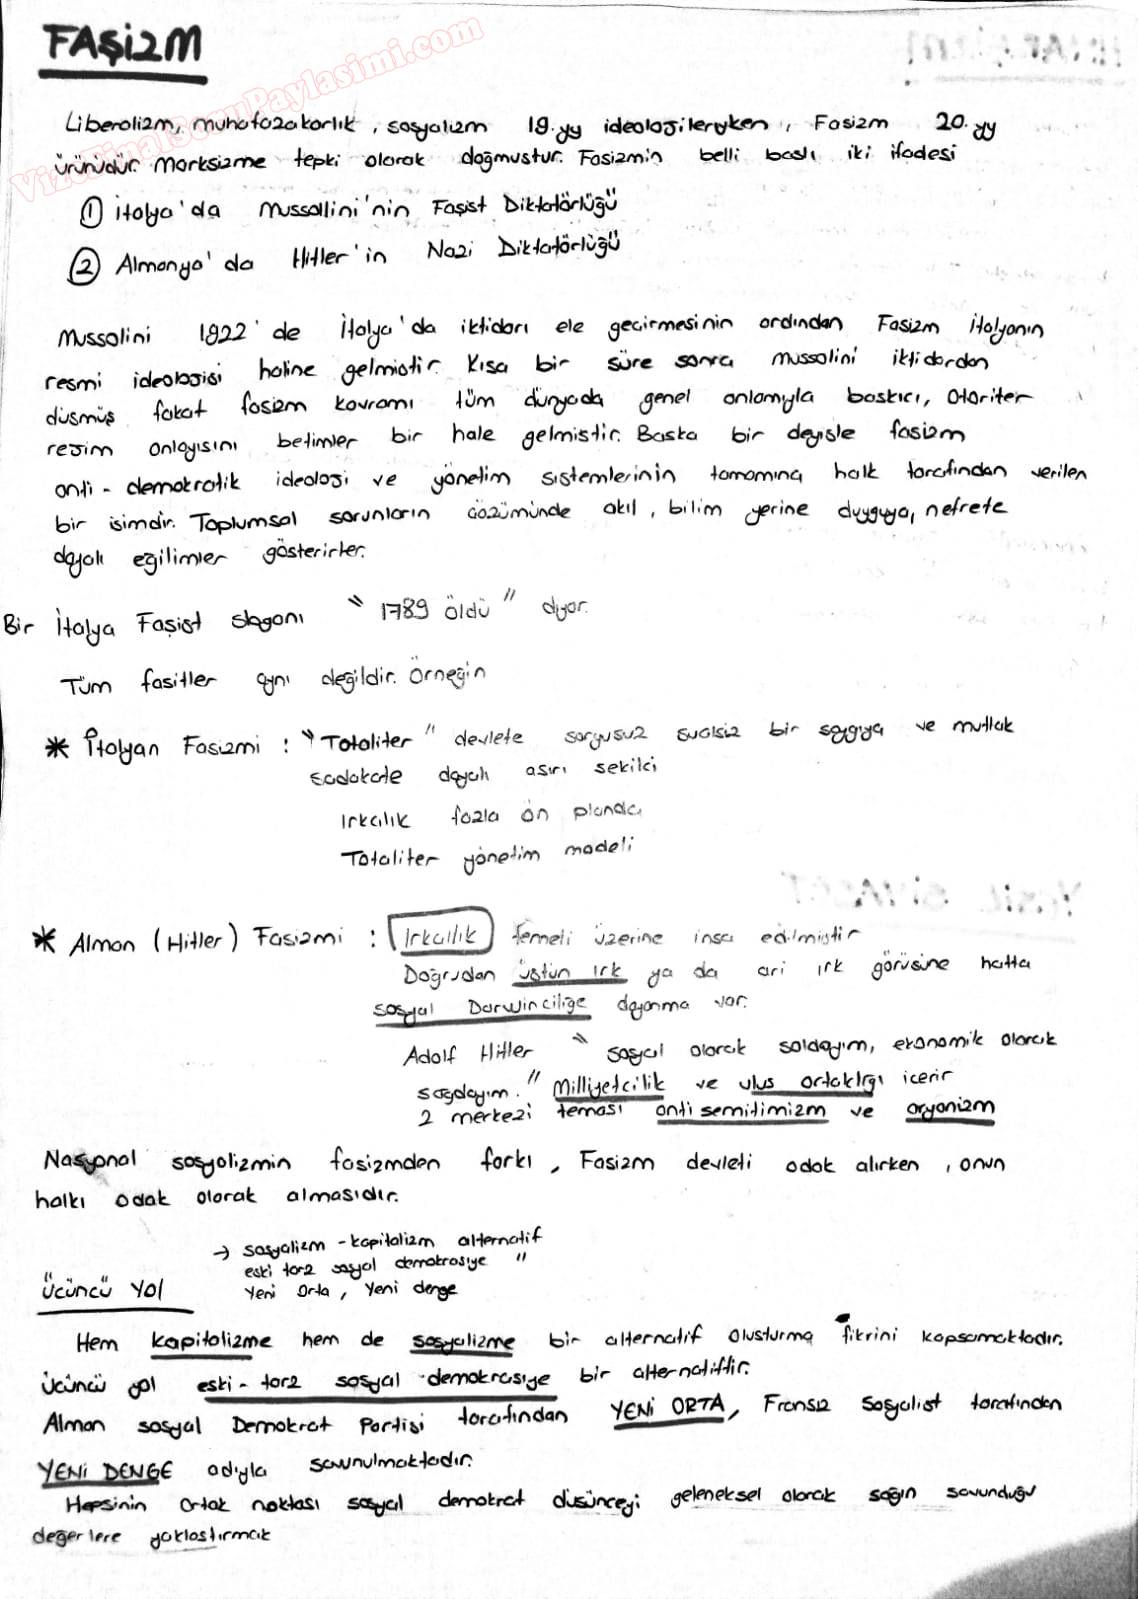 FAŞİZM
VizeFinalSoruPaylasimi.com
Liberalizm, muhafazakarlık, sosyalizm 19.yy ideolojileryken, Fasizm 20.yy
ürünüdür. Marksizme tepki olarak doğmustur. Fasizmin belli baslı iki ifadesi
① İtalya'da Mussollini'nin Faşist Diktatörlüğü
② Almanya'da Hitler'in Nazi Diktatörlüğü
Mussolini 1922'de İtalya'da iktidarı ele gecirmesinin ardından Fasizm İtalyanın
resmi ideolojisi haline gelmistir. Kısa bir süre sonra mussolini iktidardan
düsmüş fakat fasizm kavramı tüm dünyada genel anlamıyla baskıcı, otoriter
rejim anlayısını betimler bir hale gelmistir. Baska bir deyisle fasizm
anti-demokratik ideoloji ve yönetim sistemlerinin tamamına halk tarafından verilen
bir isimdir. Toplumsal sorunların çözümünde akıl, bilim yerine duyguya, nefrete
dayalı eğilimler gösterirler.
Bir İtalya Faşist slogonı "1789 öldü" diyor.
Tüm fasitler aynı değildir. Örneğin
* İtalyan Fasizmi : "Totaliter" devlete sorgusuz sualsiz bir saygıya ve mutlak
sadakate dayalı asırı sekilci
Irkcılık fazla ön planda
Totaliter yönetim modeli
* Alman (Hitler) Fasizmi : Irkcılık temeli üzerine insa edilmistir
Doğrudan üstün ırk ya da ari ırk görüsüne hatta
sosyal Darwinciliğe dayanma var.
Adolf Hitler "sosyal olarak soldayım, ekonomik olarak
sagdayım." Milliyetcilik ve ulus ortaklıgı icerir
2 merkezi teması anti semitimizm ve aryanizm
Nasyonal sosyalizmin fasizmden farkı, Fasizm devleti odak alırken, onun
halkı odak olarak almasıdır.
→ sosyalizm - kapitalizm alternatif
eski tarz sosyal demokrasiye "
Yeni Orta, Yeni denge
Üçüncü Yol
Hem kapitalizme hem de sosyalizme bir alternatif olusturma fikrini kapsamaktadır.
Üçüncü yol eski-tarz sosyal demokrasiye bir alternatiftir.
Alman sosyal Demokrat Partisi tarafından YENİ ORTA, Fransız Sosyalist tarafından
YENİ DENGE adıyla savunulmaktadır.
Hepsinin ortak noktası sosyal demokrat düsünceyi geleneksel olarak sağın savunduğu
değerlere yaklastırmak